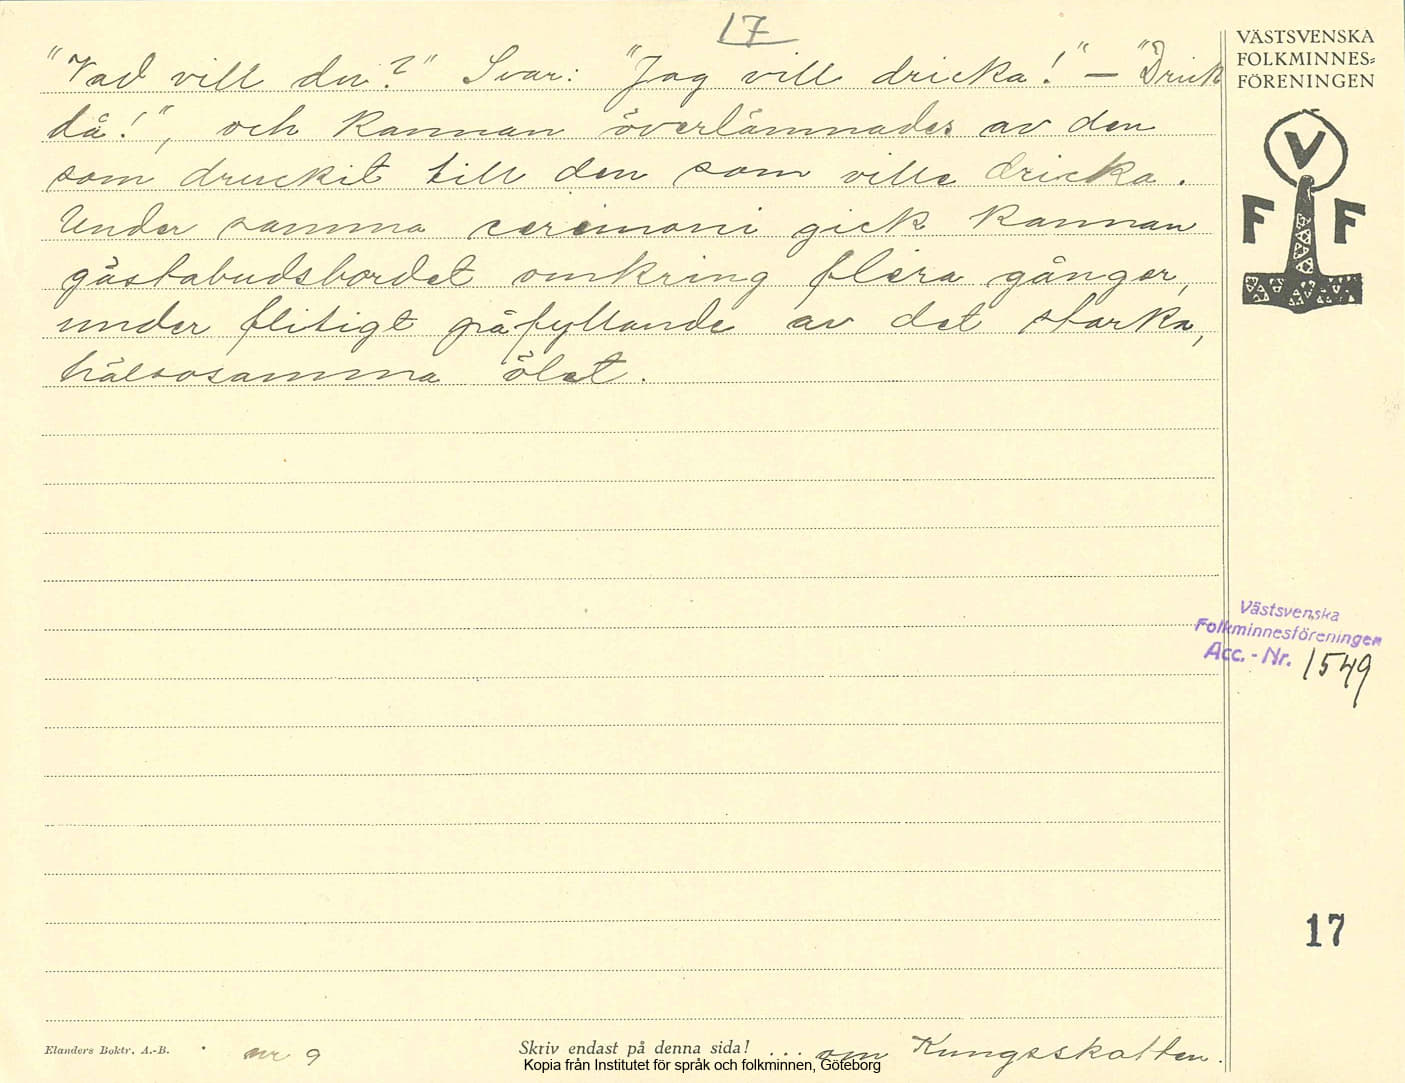 17
"Vad vill du?" Svar: "Jag vill dricka!" – "Drick
då!", och kannan överlämnades av den
som druckit till den som ville dricka.
Under samma ceremoni gick kannan
gästabudsbordet omkring flera gånger,
under flitigt påfyllande av det starka,
hälsosamma ölet.
VÄSTSVENSKA
FOLKMINNES=
FÖRENINGEN
V
F F
Västsvenska
Folkminnesföreningen
Acc.-Nr. 1549
17
Elanders Boktr. A.-B.
nr 9
Skriv endast på denna sida!
... om Kungsskatten.
Kopia från Institutet för språk och folkminnen, Göteborg